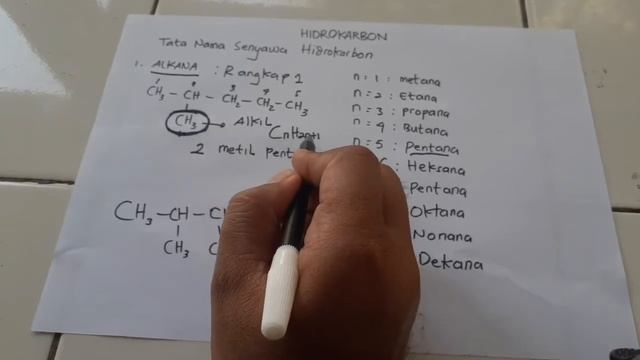 HIDROKARBON
Tata Nama Senyawa Hidrokarbon
1. ALKANA : Rangkap 1
1 2 3 4 5
CH3 - CH - CH2 - CH2 - CH3
CH3 → Alkil
CnH2n+1
2 metil
n = 1 : metana
n = 2 : Etana
n = 3 : propana
n = 4 : Butana
n = 5 : Pentana
: Heksana
Pentana
Oktana
Nonana
Dekana
CH3 - CH -
CH3